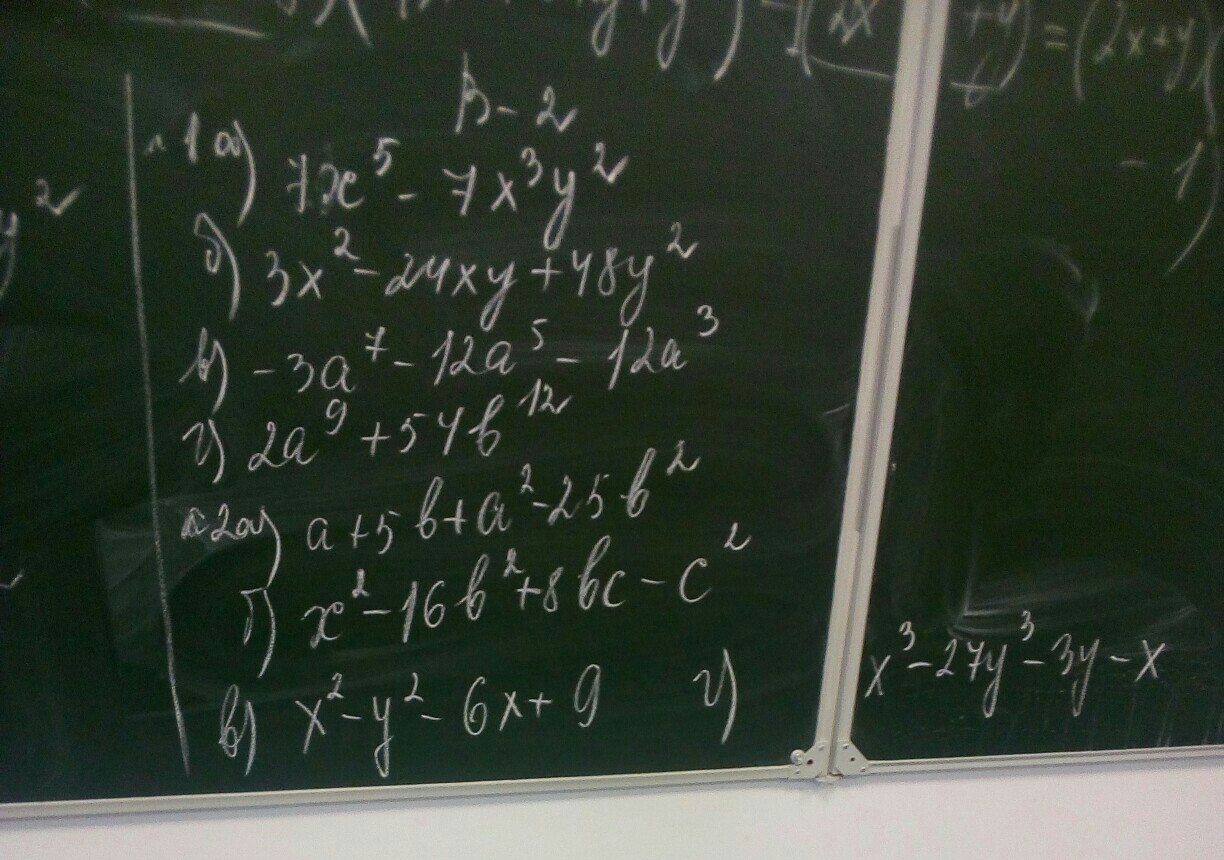 (2x+y) = (2x+y)(
- 1)
y²
В-2
№1 а) 7x⁵ - 7x³y²
б) 3x² - 24xy + 48y²
в) -3a⁷ - 12a⁵ - 12a³
г) 2a⁹ + 54b¹²
№2 а) a + 5b + a² - 25b²
б) x² - 16b² + 8bc - c²
в) x² - y² - 6x + 9 г) x³ - 27y³ - 3y - x